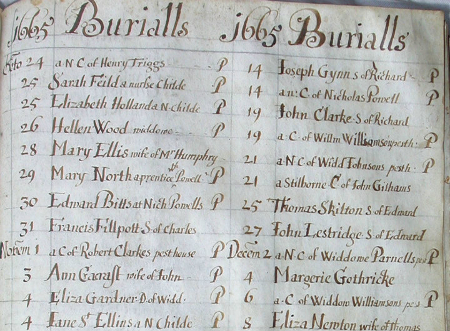 1665 Burialls
Octo 24 a N C of Henry Triggs P
25 Sarah Feild a nurse Childe P
25 Elizabeth Holland a N-childe P
26 Hellen Wood widdowe P
28 Mary Ellis wife of Mr Humphry
29 Mary North aprentice Powell P
30 Edward Bitts at Nich Powells P
31 Francis Fillpott S of Charles
Novem 1 a C of Robert Clarkes pesthouse P
3 Ann wife of John P
4 Eliza Gardner D of Widd P
4 Jane St Ellins a N Childe P
1665 Burialls
14 Joseph Gynn S of Richard P
14 a n: C of Nicholas Powell P
19 John Clarke S of Richard
19 a C of Willm Williamson pesth P
21 a N C of Widd Johnsons pesth P
21 a Stilborne C of John Gilhams
25 Thomas Skilton S of Edmund
27 John Lestridge S of Edward
Decem 2 a N C of Widdowe Parnells P
4 Margerie Gothricke P
6 a C of Widdow Williamsons P
8 Eliza Newton wife of thomas